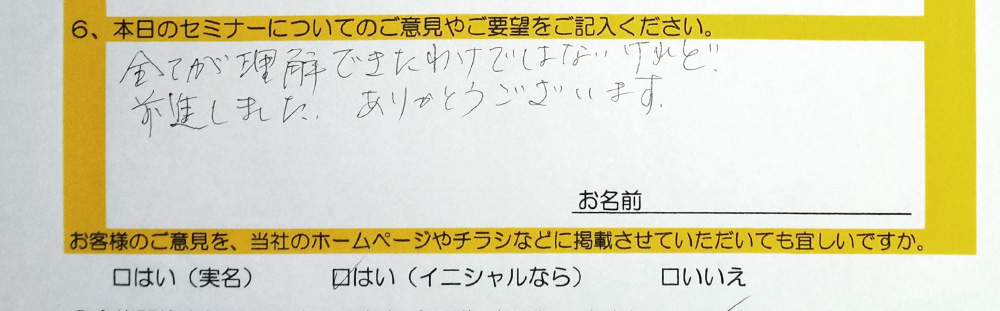 6、本日のセミナーについてのご意見やご要望をご記入ください。
全てが理解できたわけではないけれど
前進しました。ありがとうございます。
お名前
お客様のご意見を、当社のホームページやチラシなどに掲載させていただいても宜しいですか。
□はい（実名） ☑はい（イニシャルなら） □いいえ